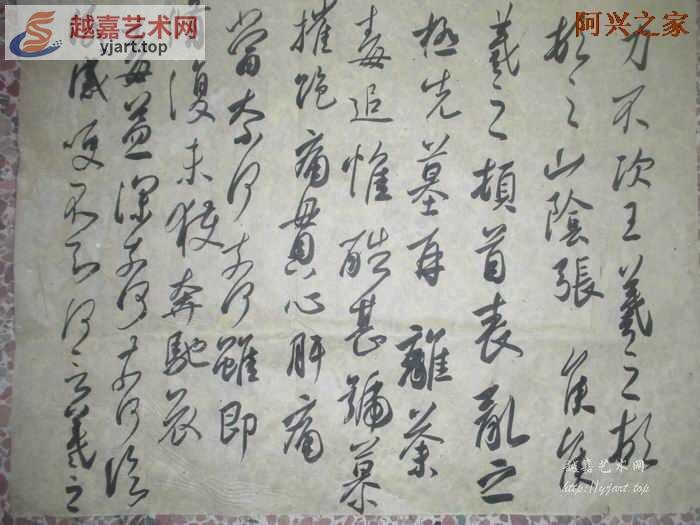 越嘉艺术网
yjart.top
阿兴之家
力不次王羲之
之山陰張侯
羲之頓首喪亂之
極先墓再離荼
毒追惟酷甚號慕
摧絕痛貫心肝痛
當奈何奈何雖即
復未獲奔馳哀
毒益深奈何奈何臨
感哽不知何言羲之
越嘉艺术网
http://yjart.top